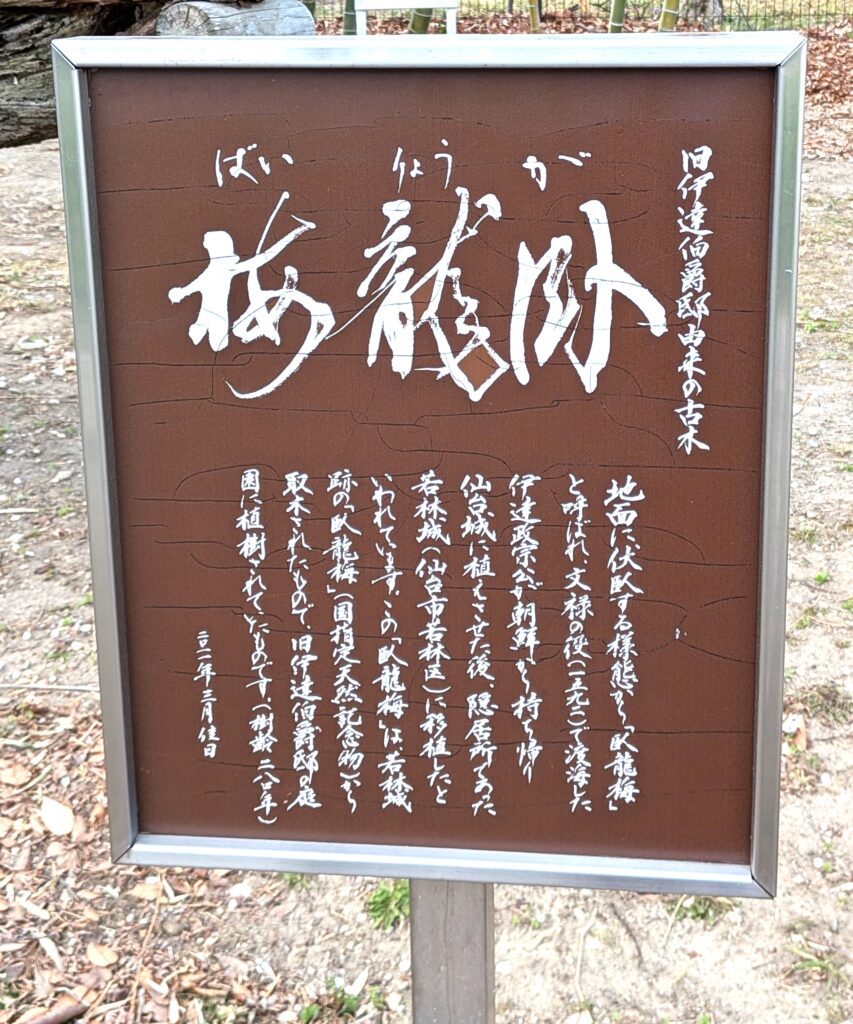 旧伊達伯爵邸由来の古木
がりょうばい
臥龍梅
地面に伏臥する様態から「臥龍梅」
と呼ばれ、文禄の役(一五九二)で渡海した
伊達政宗公が朝鮮から持ち帰り
仙台城に植えさせた後、隠居所であった
若林城(仙台市若林区)に移植したと
いわれています。この「臥龍梅」は、若林城
跡の「臥龍梅」(国指定天然記念物)から
取木されたもので、旧伊達伯爵邸の庭
園に植樹されていたものです。(樹齢二八〇年)
二〇一一年三月佳日